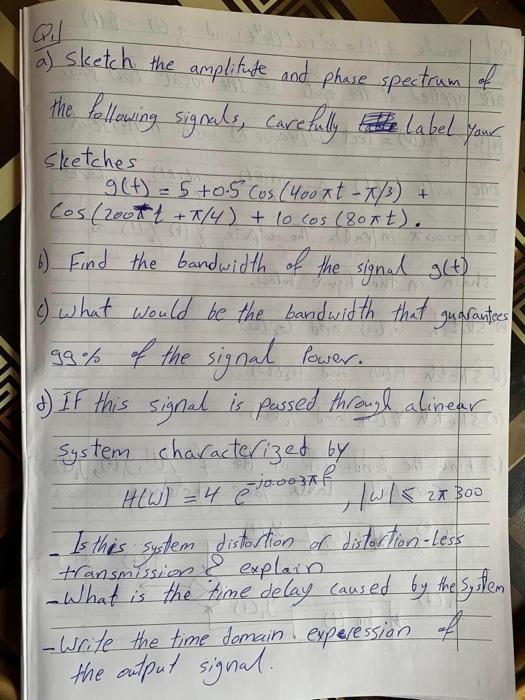 Q1
a) Sketch the amplitute and phase spectrum of
the following signals, carefully label your
sketches
g(t) = 5 +0.5 Cos (400πt - π/3) +
Cos (200πt + π/4) + 10 cos (80πt).
b) Find the bandwidth of the signal g(t)
c) what would be the bandwidth that guarantees
99% of the signal Power.
d) IF this signal is passed through alinear
system characterized by
H(W) = 4 e^-j0.003πf , |W| ≤ 2π 300
- Is this system distortion or distortion-less
transmission & explain
- What is the time delay caused by the System
- Write the time domain experession of
the output signal.